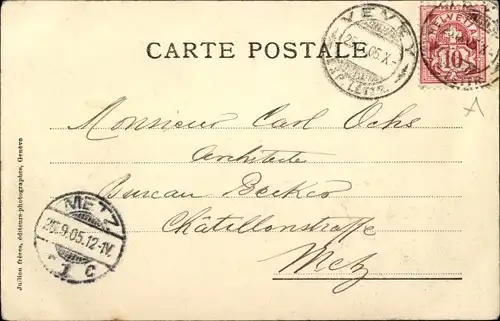 CARTE POSTALE
VEVEY
EXP. LETTR.
HELVETIA
10
Monsieur Carl Ochs
Architecte
Bureau Becker
Châtillonstrasse
Metz
METZ
26.9.05.12-1V.
1 c
Jullien frères, éditeurs-photographes, Genève